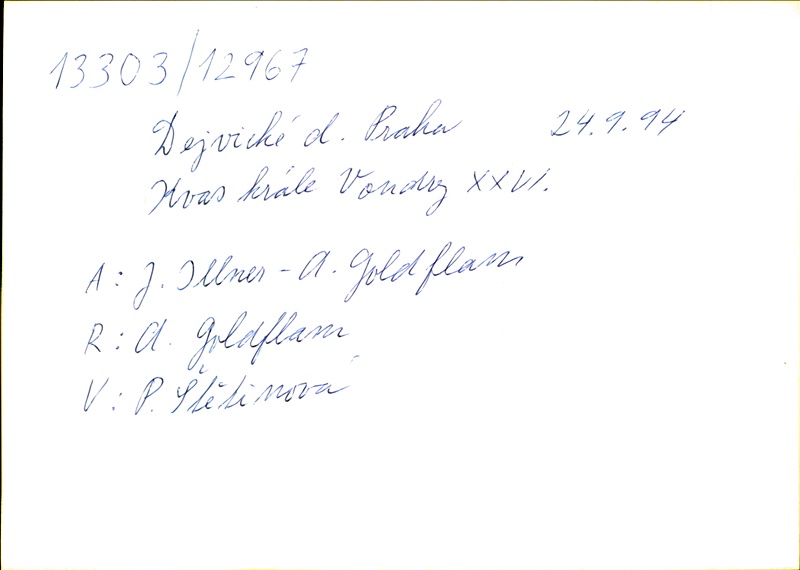 13303/12967
Dejvické d. Praha 24.9.94
Kvas krále Vondry XXVI.
A: J. Illner - A. Goldflam
R: A. Goldflam
V: P. Štětinová